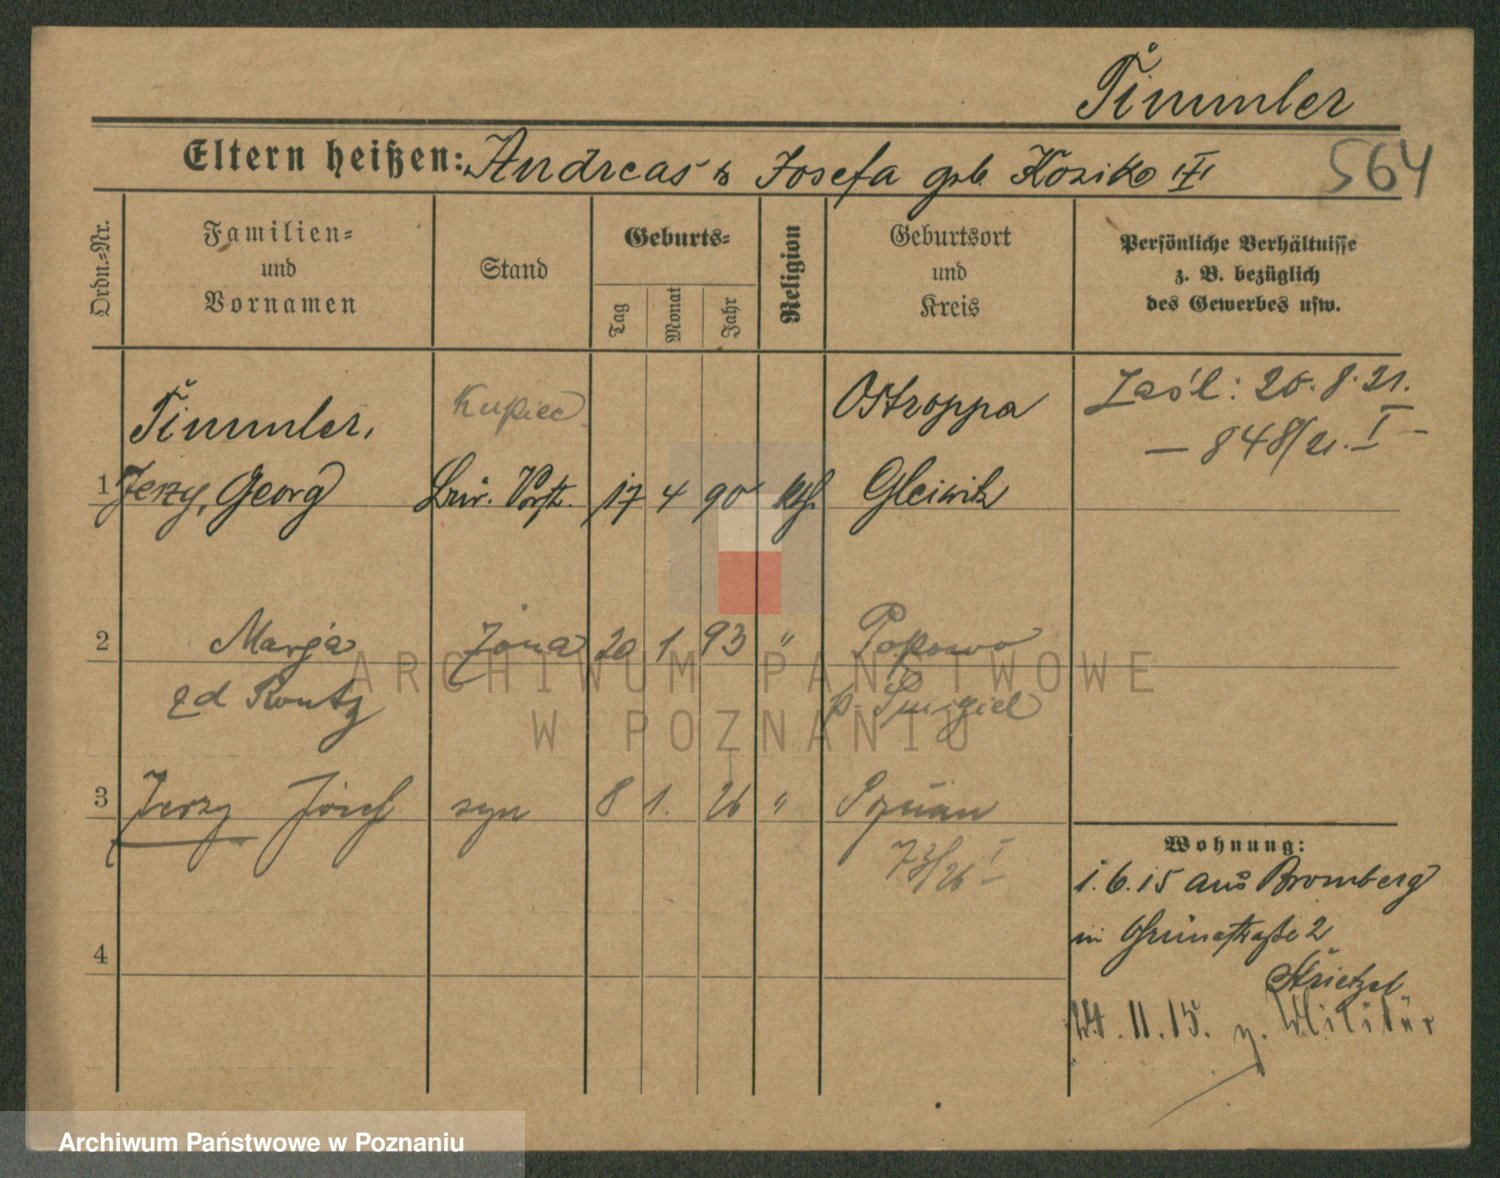 Timmler
Eltern heißen: Andreas & Josefa geb. Kozik
564
Ordn.-Nr.
Familien- und Vornamen
Stand
Geburts-
Tag
Monat
Jahr
Religion
Geburtsort und Kreis
Persönliche Verhältnisse
z. B. bezüglich
des Gewerbes usw.
Timmler,
Kupiec
Ostroppa
Zaśl: 20.8.21.
— 848/21. I —
1 Jerzy, Georg
17 4 90 kth. Gleiwitz
2 Marja Żona 20 1 93 " Popowo
zd p. Śmigiel
3 Jerzy Józef syn 8 1. 26 " Poznań
73/26 I
Wohnung:
1.6.15 aus Bromberg
in Grünestraße 2
4
11.15. z. Militär
ARCHIWUM PAŃSTWOWE
W POZNANIU
Archiwum Państwowe w Poznaniu